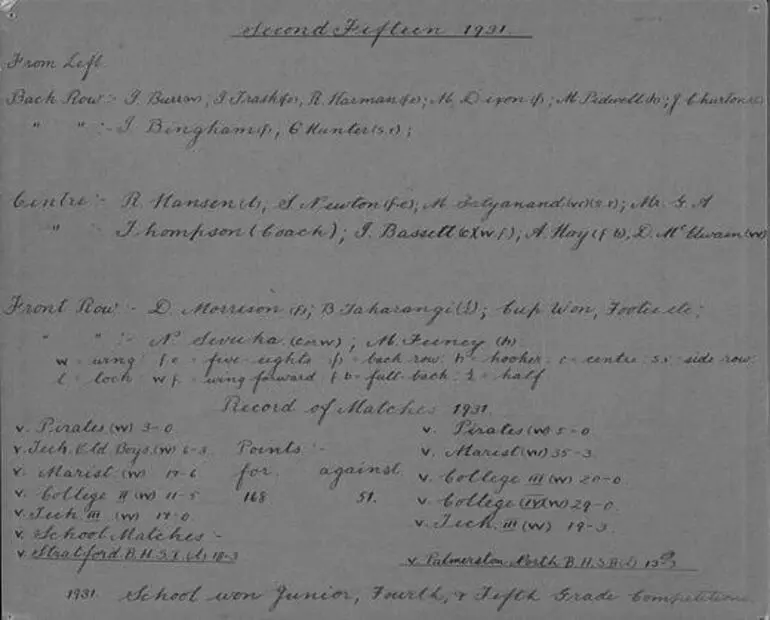 Second Fifteen 1931.
From Left
Back Row :- J. Burr(w); J. Trask(fe), R. Harman(fe); M. Dixon(f); M. Pidwell(h); J. Churton(c)
" " :- J. Bingham(f), C Hunter(s.r);
Centre :- R. Hansen(l), S Newton(f.e), M. Satyanand(vc)(s.r); Mr. G. A
" Thompson (Coach); J. Bassett(c)(w.f); A. Hay (f b), D. McElwain(w)
Front Row :- D. Morrison (f); B Taharangi(½); Cup Won, Footer etc;
" " :- N. Sivuka (c or w); M. Feeney (h)
w = wing: f e = five-eights (f) = back row: h = hooker: c = centre: s.r = side row:
l = lock w f. = wing forward f b = full-back: ½ = half
Record of Matches 1931.
v. Pirates (w) 3-0
v. Tech. Old Boys (w) 6-3
v. Marist (w) 17-6
v. College II (w) 11-5
v. Tech. III (w) 17-0
v. School Matches :-
v. Stratford. B.H.S. I. (l) 18-3
Points :-
for against
168 51.
v. Pirates (w) 5-0
v. Marist (w) 35-3
v. College III (w) 20-0
v. College (IV)(w) 29-0
v. Tech. III (w) 19-3.
v. Palmerston North B.H.S. (l) 13
1931. School won Junior, Fourth, & Fifth Grade Competitions.